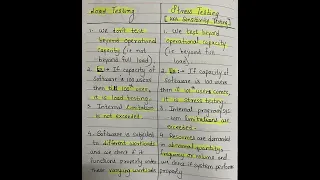 Load Testing
1. We don't test
beyond operational
capacity (ie not
beyond full load).
2. Ex :- If capacity of
software is 100 users
then till 100th user,
it is load testing.
3. Internal limitation
is not exceeded.
4. Software is subjected
to different workloads
and we check if it
functions properly under
these varying workloads
Stress Testing
Sensitivity Testing]
1. We test beyond
operational capacity
(ie beyond full
load).
2. Ex :- If capacity of
software is 100 users
then if 101th user comes,
it is stress testing.
3. Internal program/sys
tem limitations are
exceeded.
4. Resources are demanded
in abnormal quantity,
frequency or volume and
we check if system perform
properly